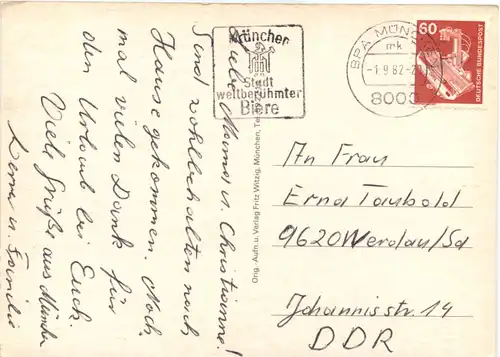 Liebe Mama u. Christianne!
Sind wohlbehalten nach
Hause gekommen. Noch
mal vielen Dank für
den Urlaub bei Euch.
Viele Grüße aus München
u. Familie
München
Stadt
weltberühmter
Biere
BPA MÜN
mk
-1.9.82-20
8000
60
DEUTSCHE BUNDESPOST
Orig.-Aufn. u. Verlag Fritz Witzig, München, Te
An Frau
Erna Taubold
9620 Werdau/Sa
Johannisstr. 14
DDR